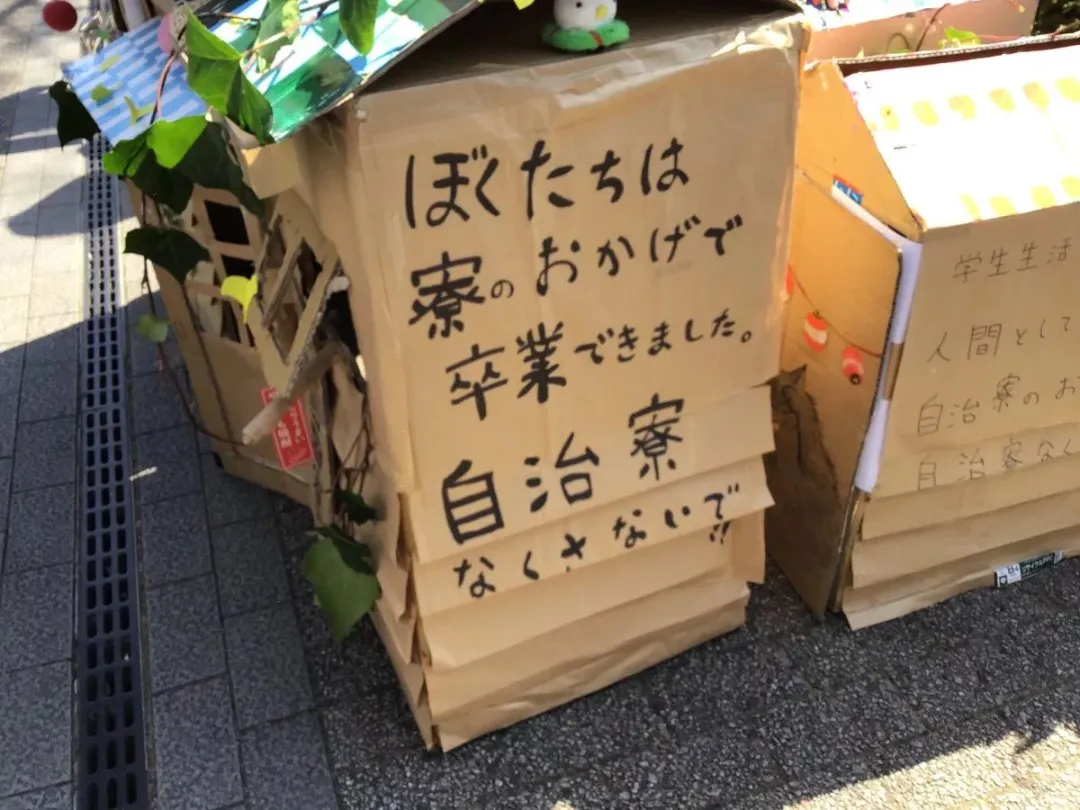 ぼくたちは
寮のおかげで
卒業できました。
自治寮
なくさないで!!
学生生活
人間として
自治寮のお
自治寮なく